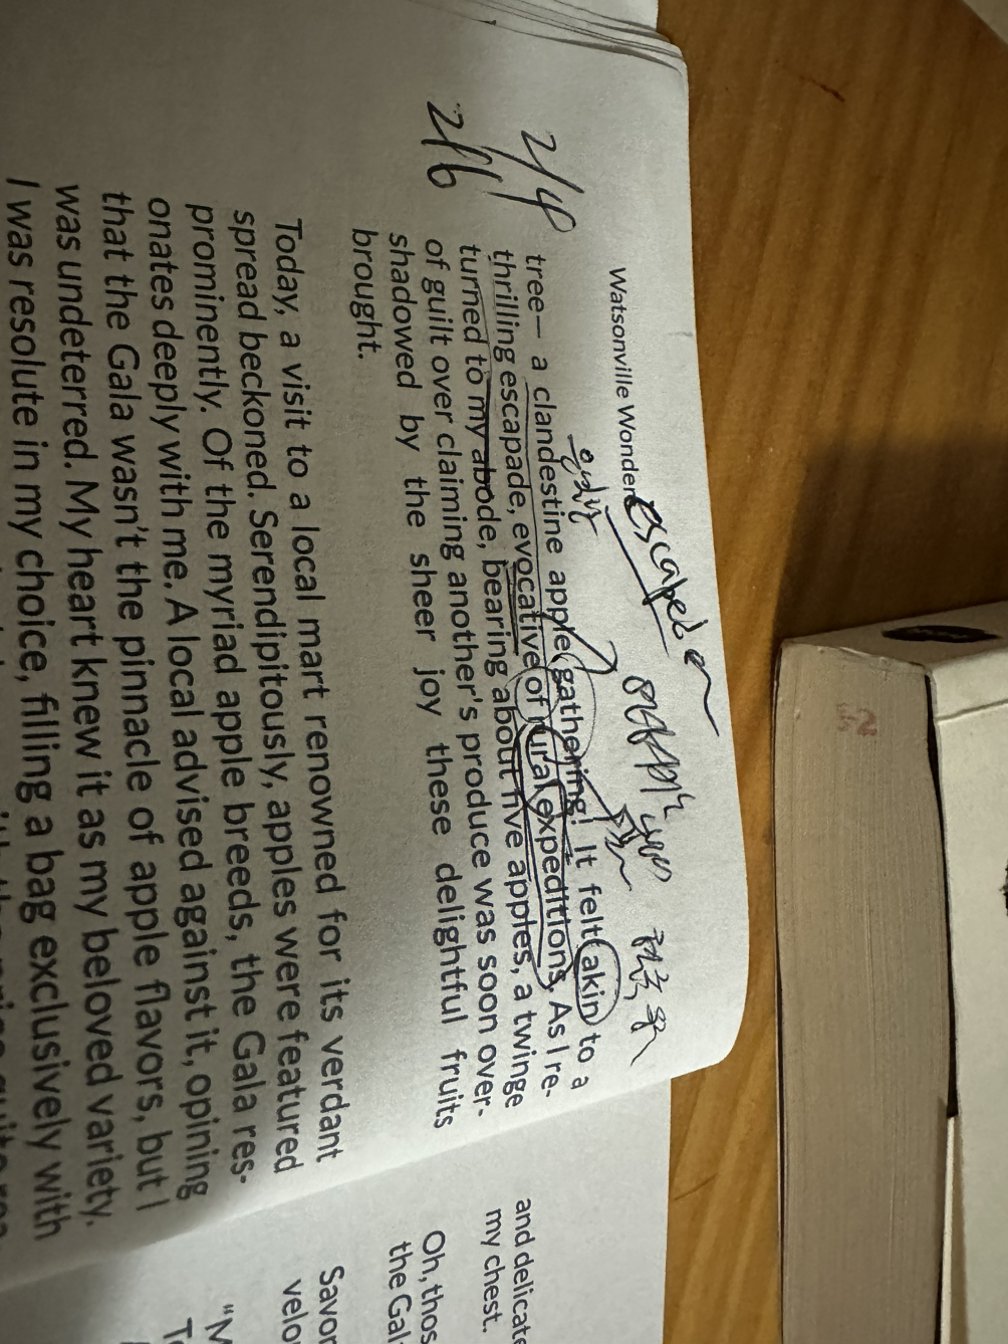 Watsonville Wonder
escaped
2/4
2/6
tree— a clandestine apple gathering! It felt akin to a
thrilling escapade, evocative of rural expeditions. As I re-
turned to my abode, bearing about five apples, a twinge
of guilt over claiming another's produce was soon over-
shadowed by the sheer joy these delightful fruits
brought.
Today, a visit to a local mart renowned for its verdant
spread beckoned. Serendipitously, apples were featured
prominently. Of the myriad apple breeds, the Gala res-
onates deeply with me. A local advised against it, opining
that the Gala wasn't the pinnacle of apple flavors, but I
was undeterred. My heart knew it as my beloved variety.
I was resolute in my choice, filling a bag exclusively with
and delicate
my chest.
Oh, thos
the Gal
Savor
velo
"M
T